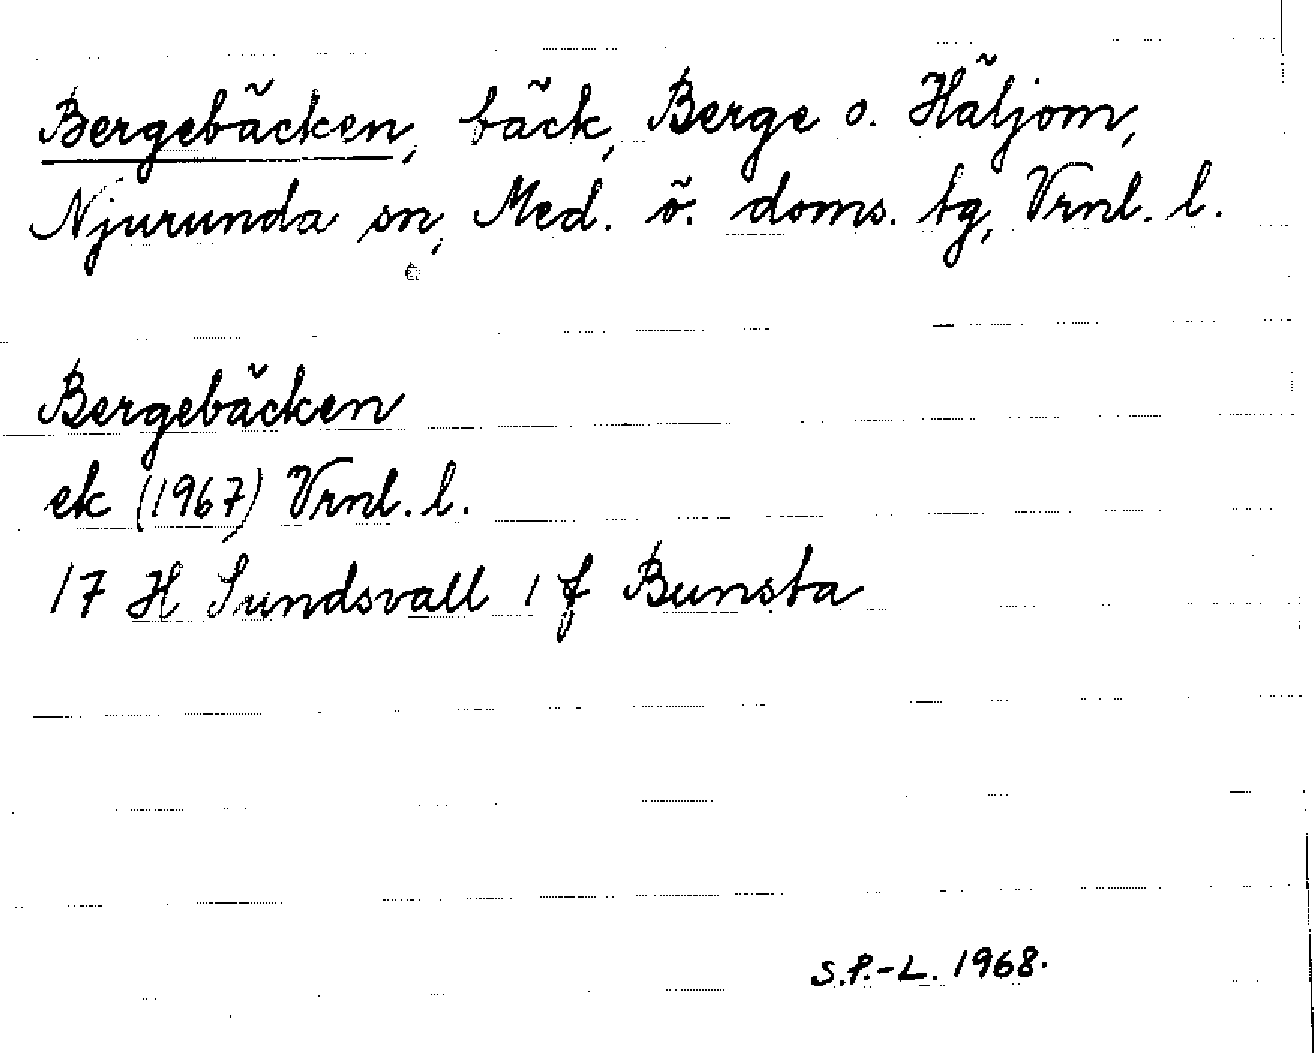 Bergebäcken, bäck, Berge o. Häljom,
Njurunda sn, Med. ö. doms. tg, Vrnl. l.
Bergebäcken
ek (1967) Vrnl. l.
17 H Sundsvall 1 f Bunsta
S.P.-L. 1968.